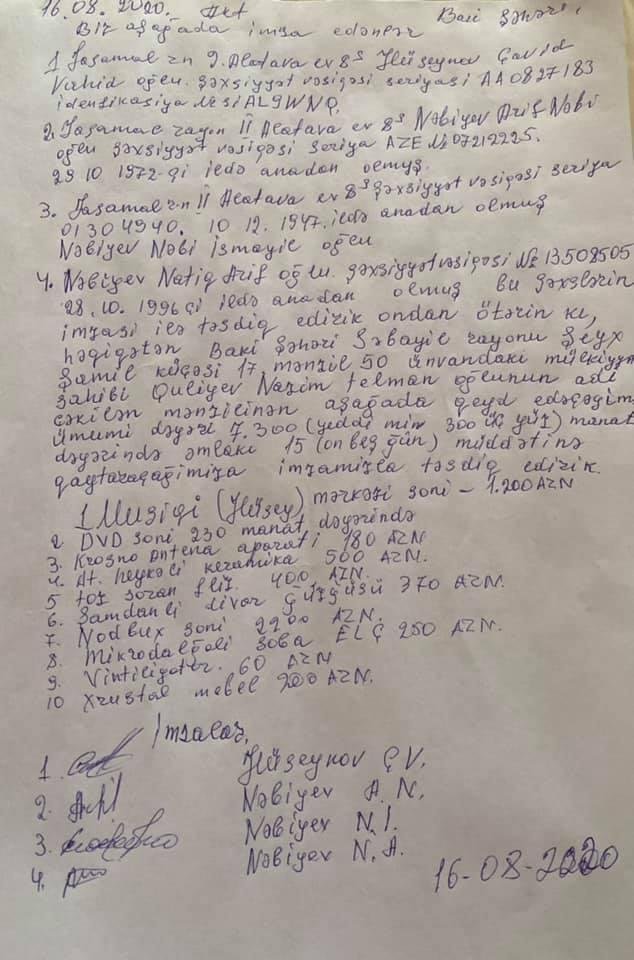 16.08.2020. Akt Baki şəhəri,
Biz aşağada imza edənlər
1. Jasamal r-n 2. Alatava ev 8⁵ Hüseynov Çavid
Vahid oğlu. Şəxsiyyət vəsiqəsi seriyasi AA0827183
identikasiya № si AL9WNQ,
2. Jasamal rayon II Alatava ev 8⁵ Nəbiyev Arif Nəbi
oğlu şəxsiyyət vəsiqəsi seriya AZE № 07212225.
29 10 1972-çi ildə anadan olmuş.
3. Jasamal r-n II Alatava ev 8⁵ şəxsiyyət vəsiqəsi seriya
01304940. 10 12. 1947. ildə anadan olmuş
Nəbiyev Nəbi İsmayil oğlu
4. Nəbiyev Natiq Arif oğlu. şəxsiyyət vəsiqəsi № 13508505
28.10.1996 çi ildə anadan olmuş bu şəxslərin
imzasi ilə təsdiq edirik ondan ötərin ki,
həqiqətən Baki şəhəri Səbayil rayonu Şeyx
Şamil küçəsi 17 mənzil 50 ünvandaki mülkiyyət
sahibi Quliyev Nazim telman oğlunun adi
çəkilən mənzilinən aşağada qeyd edəçəğim,
ümumi dəyəri 7.300 (yeddi min 300 üç yüz) manat
dəyərində əmlaki 15 (on beş gün) müddətinə
qaytaraçağimiza imzamizla təsdiq edirik.
1 Musiqi (Hüsey) mərkəzi soni - 1.200 AZN
2 DVD soni 230 manat dəyərində
3. Krosno Antena aparati 180 AZN
4. At. heykəli keramika 500 AZN.
5 toz soran fliz. 400 AZN.
6. Şamdanli divar güzgüsü 370 AZN.
7. Nodbux soni 2200 AZN.
8. Mikrodalğali soba ELÇ 250 AZN.
9. Vintiliyator. 60 AZN
10 Xrustal mebel 900 AZN.
İmzalar,
1. Hüseynov Ç V.
2. Arif Nəbiyev A. N.
3. Nəbiyev N. İ.
4. Nəbiyev N. A.
16-08-2020